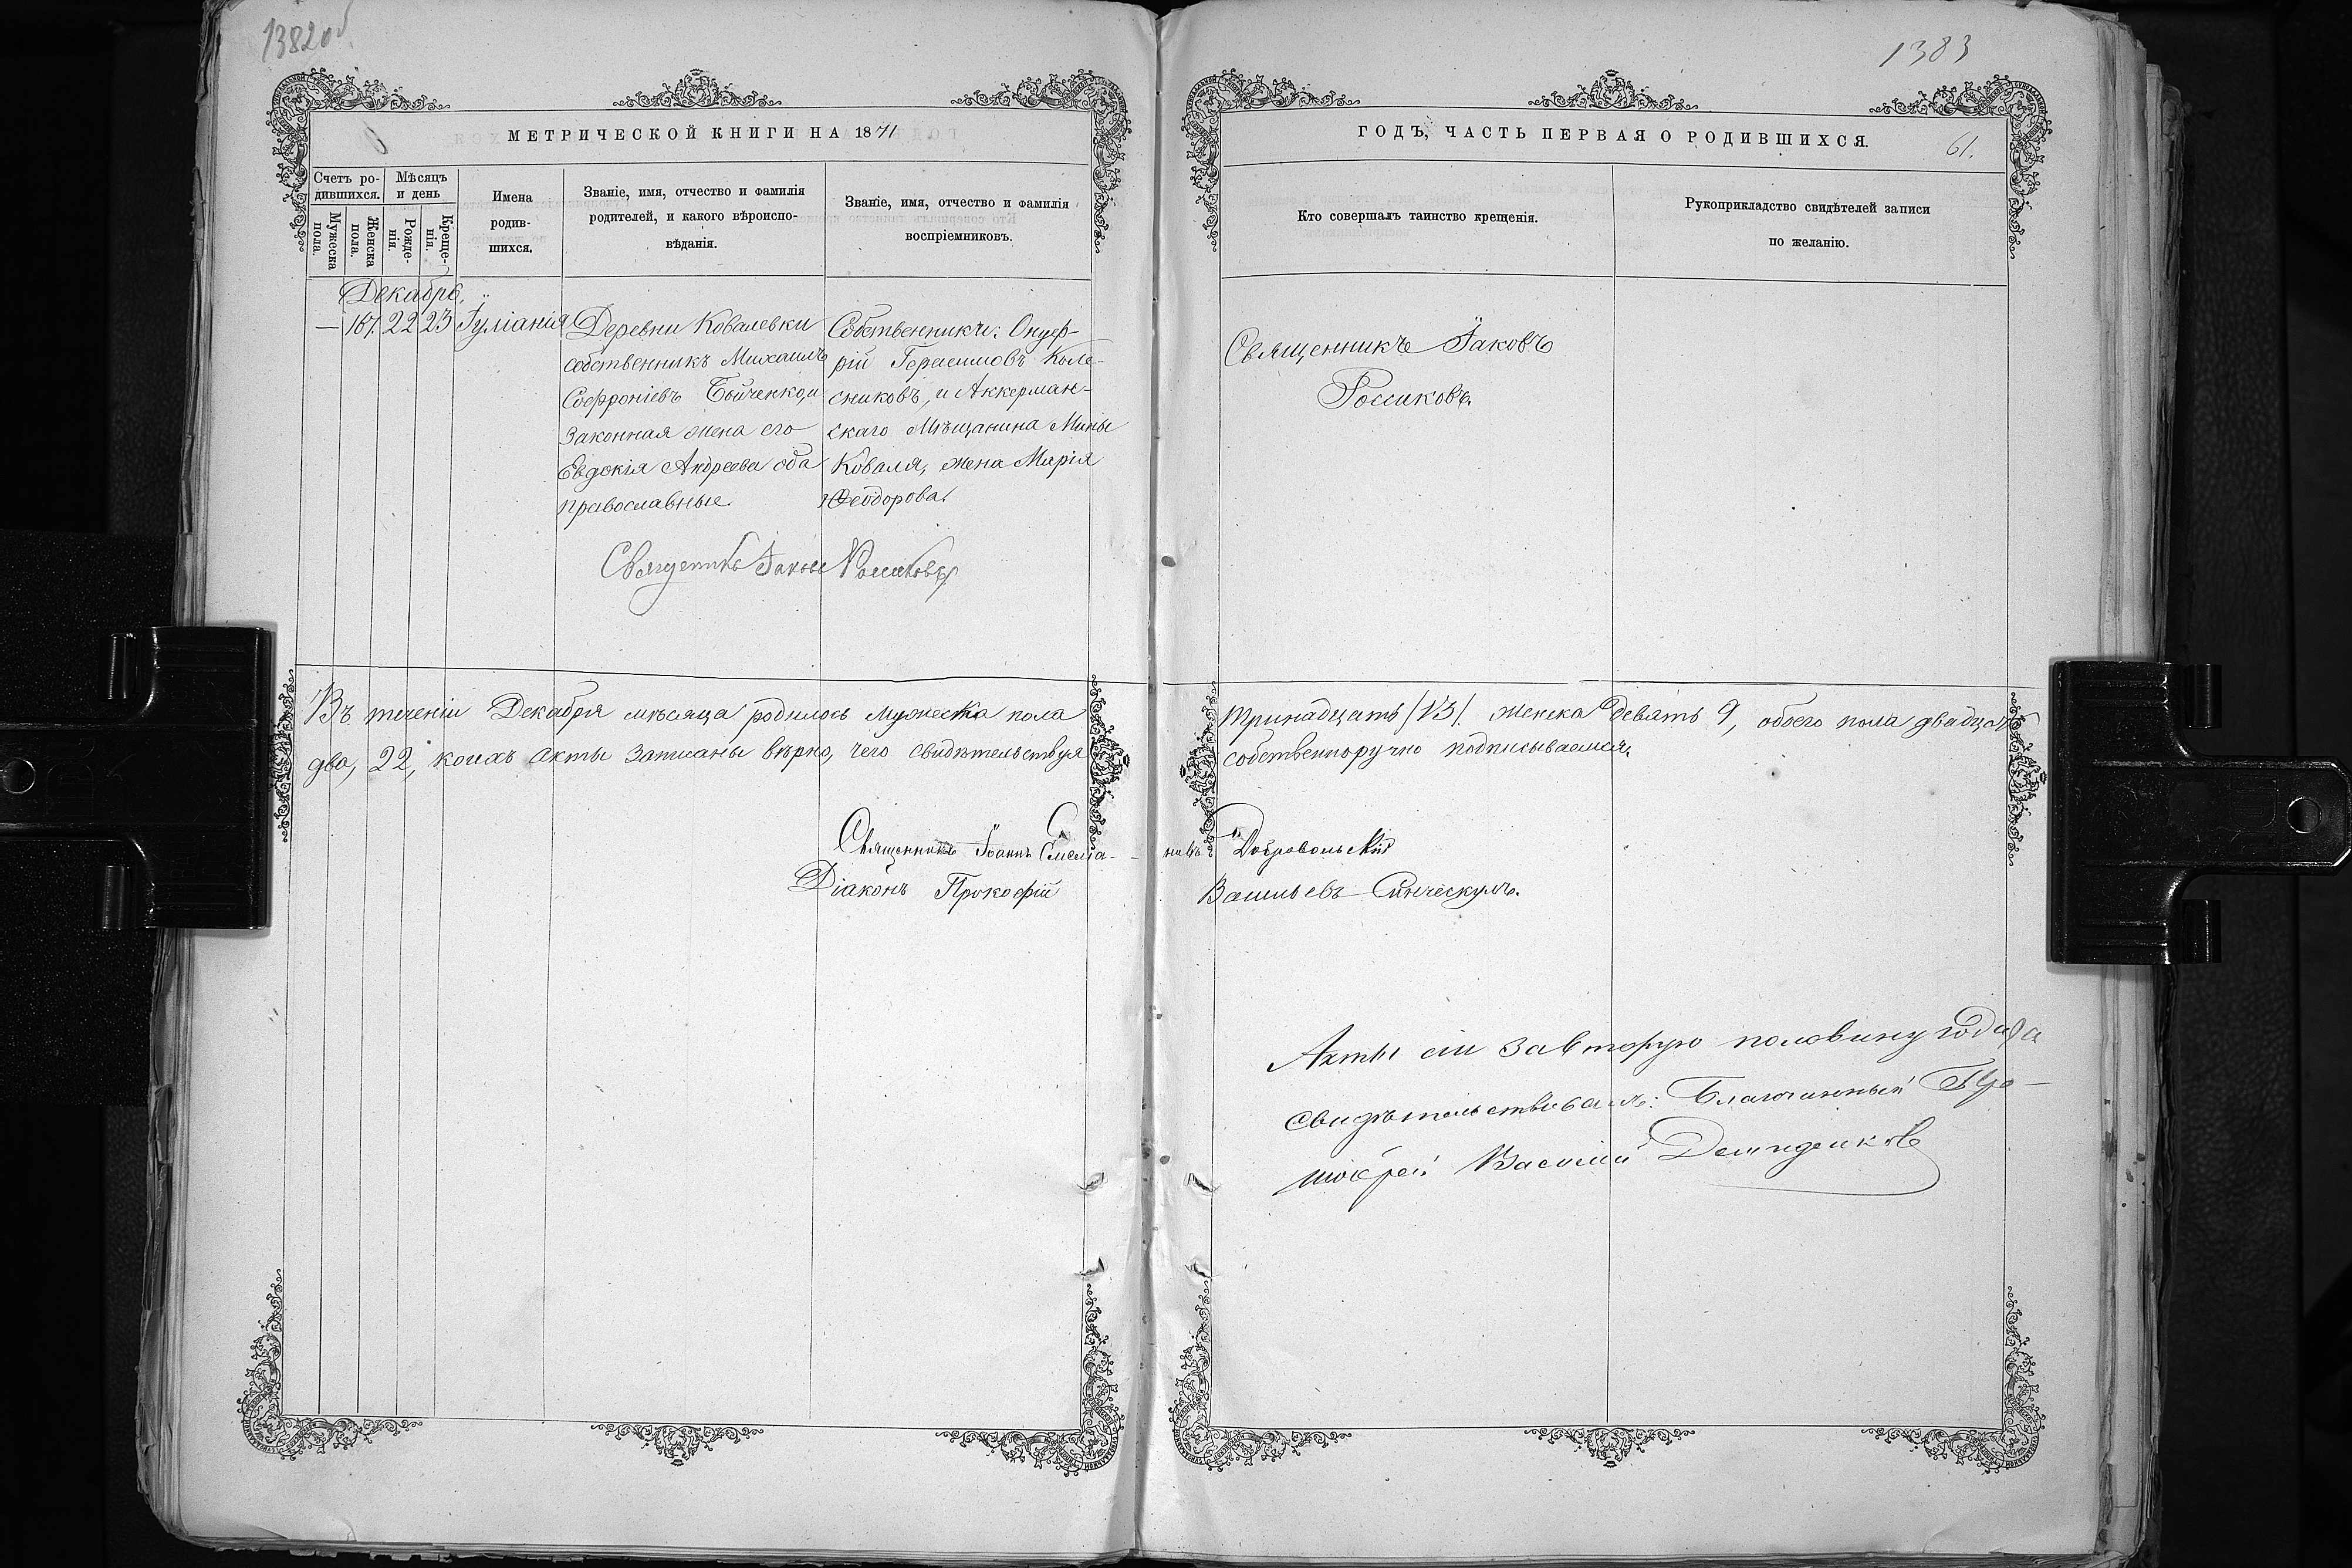 1382об
МЕТРИЧЕСКОЙ КНИГИ НА 1871
Счетъ ро-
дившихся.
Мужеска
пола.
Женска
пола.
Мѣсяцъ
и день
Рожде-
нія.
Креще-
нія.
Имена
родив-
шихся.
Званіе, имя, отчество и фамилія
родителей, и какого вѣроиспо-
вѣданія.
Званіе, имя, отчество и фамилія
воспріемниковъ.
Декабрь.
— 167. 22 23 Іуліанія
Деревни Ковалевки
собственникъ Михаилъ
Софроніевъ Бойченко, и
законная жена его
Евдокія Андреева оба
православные.
Собственникъ: Онуф-
рій Герасимовъ Коле-
сниковъ, и Аккерман-
скаго Мѣщанина Мины
Коваля, жена Марія
Ѳеодорова.
Священникъ Іаковъ Россиковъ
Въ теченіи Декабря мѣсяца родилось мужеска пола
два, 22, коихъ акты записаны вѣрно, чего свидѣтельствуя
Священникъ Іоаннъ
Діаконъ Прокофій
1383
ГОДЪ, ЧАСТЬ ПЕРВАЯ О РОДИВШИХСЯ.
61.
Кто совершалъ таинство крещенія.
Рукоприкладство свидѣтелей записи
по желанію.
Священникъ Іаковъ
Россиковъ.
тринадцать /13/. женска девять 9, обоего пола двадцать
собственноручно подписываемся.
Добровольскій
Васильевъ
Акты сіи за вторую половину года
свидѣтельствовалъ: Благочинный Про-
тоіерей Василій Демиденковъ